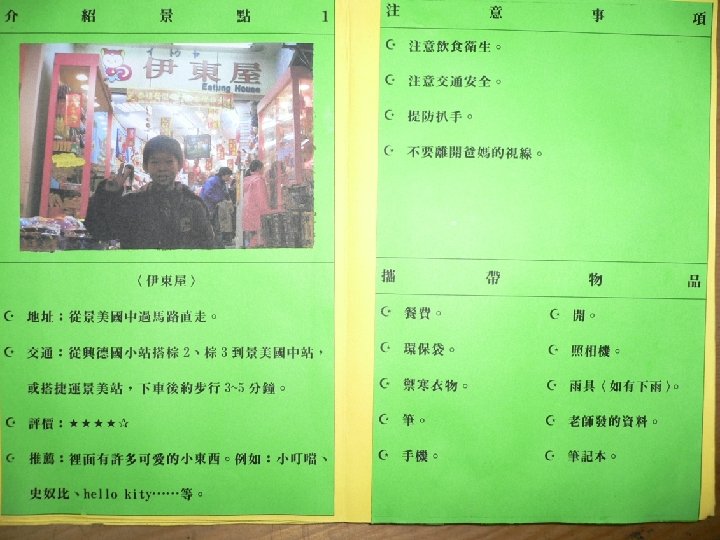 介紹景點1
伊東屋
Eatung House
〈伊東屋〉
☪ 地址：從景美國中過馬路直走。
☪ 交通：從興德國小站搭棕2、棕3到景美國中站，
或搭捷運景美站，下車後約步行3~5分鐘。
☪ 評價：★★★★☆
☪ 推薦：裡面有許多可愛的小東西。例如：小叮噹、
史奴比、hello kity……等。
注意事項
☪ 注意飲食衛生。
☪ 注意交通安全。
☪ 提防扒手。
☪ 不要離開爸媽的視線。
攜帶物品
☪ 餐費。
☪ 環保袋。
☪ 禦寒衣物。
☪ 筆。
☪ 手機。
☪ 閒。
☪ 照相機。
☪ 雨具〈如有下雨〉。
☪ 老師發的資料。
☪ 筆記本。